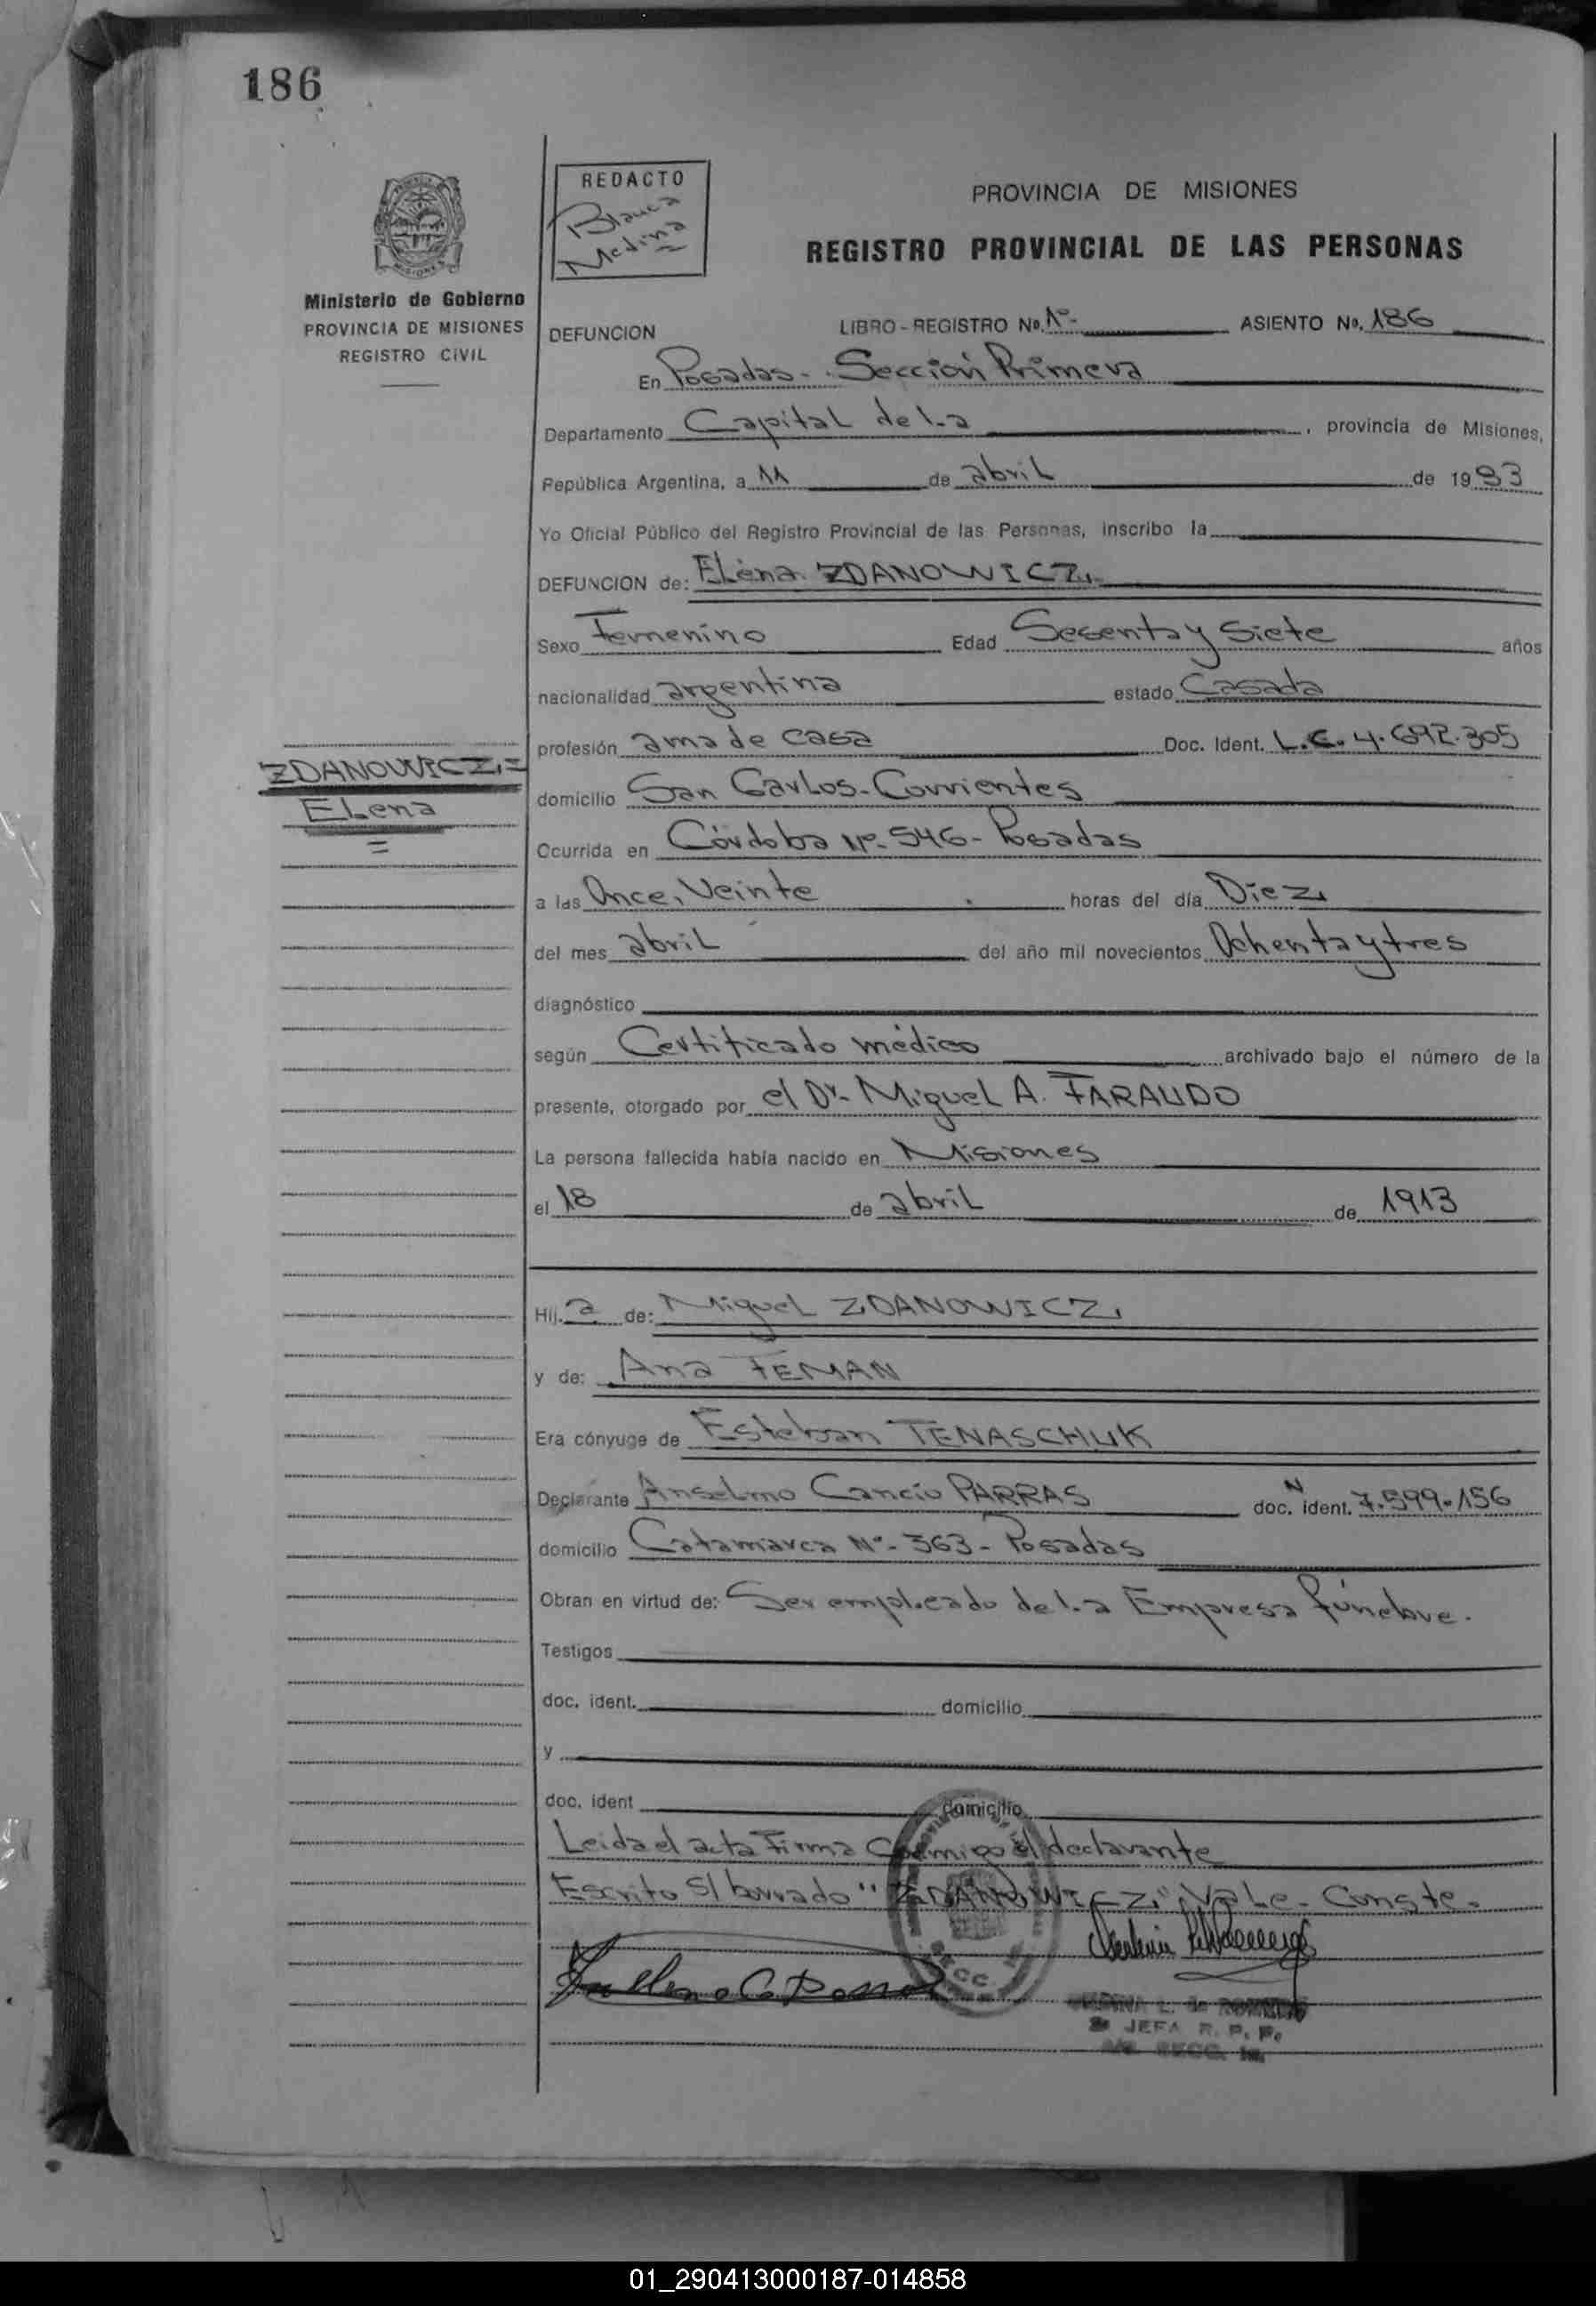 186
REDACTO
Blanca
Medina
PROVINCIA DE MISIONES
REGISTRO PROVINCIAL DE LAS PERSONAS
MISIONES
Ministerio de Gobierno
PROVINCIA DE MISIONES
REGISTRO CIVIL
DEFUNCION LIBRO - REGISTRO No. 1º- ASIENTO No. 186
En Posadas - Sección Primera
Departamento Capital de la, provincia de Misiones,
República Argentina, a 11 de abril de 1983
Yo Oficial Público del Registro Provincial de las Personas, inscribo la
DEFUNCION de: Elena ZDANOWICZ.
Sexo Femenino Edad Sesenta y Siete años
nacionalidad argentina estado Casada
profesión ama de casa Doc. Ident. L.C. 4.692.305
ZDANOWICZ,=
Elena
=
domicilio San Carlos - Corrientes
Ocurrida en Córdoba Nº- 546 - Posadas
a las Once, Veinte horas del día Diez
del mes abril del año mil novecientos Ochenta y tres
diagnóstico
según Certificado médico archivado bajo el número de la
presente, otorgado por el Dr- Miguel A. FARAUDO
La persona fallecida había nacido en Misiones
el 18 de abril de 1913
Hij a de: Miguel ZDANOWICZ,
y de: Ana FEMAN
Era cónyuge de Esteban TENASCHUK
Declarante Anselmo Cancio PARRAS doc. ident. N 7.599.156
domicilio Catamarca Nº- 363 - Posadas
Obran en virtud de: Ser empleado de la Empresa fúnebre.
Testigos
doc. ident. domicilio
y
doc. ident domicilio
Leida el acta Firma Conmigo el declarante
Escrito S/ borrado "ZDANOWICZ," Vale. Conste.
SECC.
L. de
JEFA R. P. P.
SECC. 1a.
01_290413000187-014858